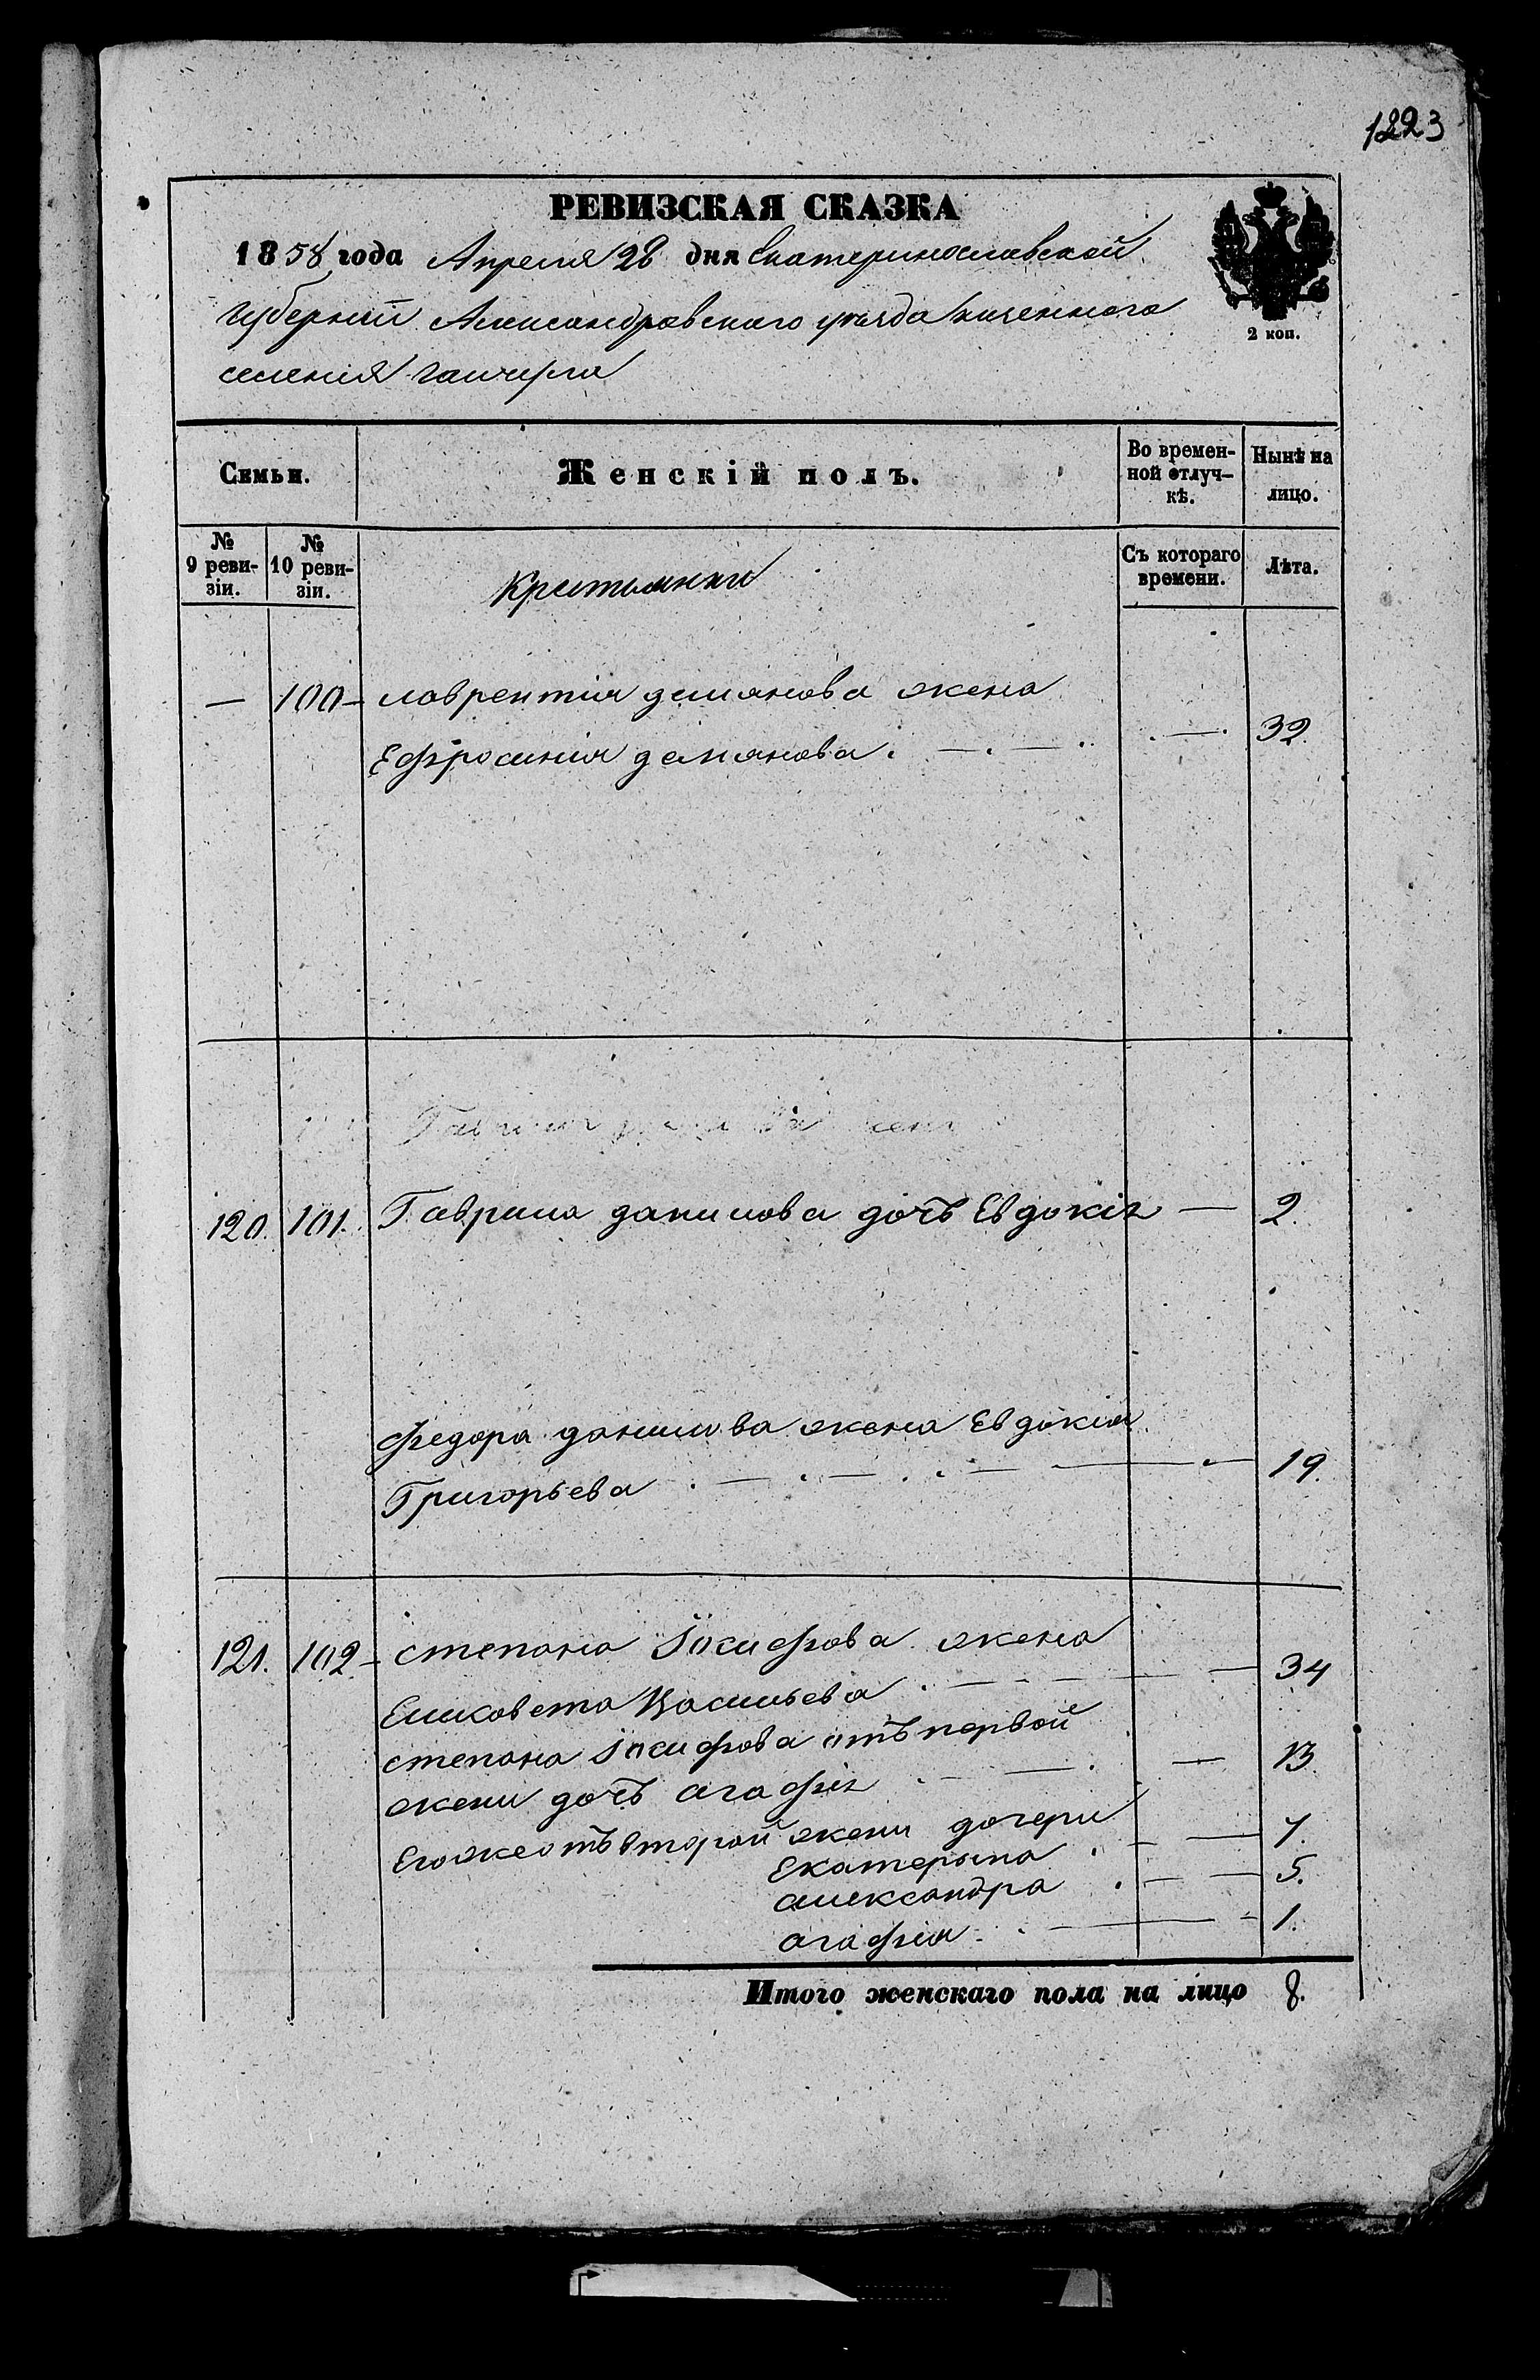 1223
РЕВИЗСКАЯ СКАЗКА
1858 года Апреля 28 дня Екатеринославской
губерніи Александровскаго уѣзда казеннаго
селенія Гайчула
2 коп.
Семьи.
Женскій полъ.
Во времен-
ной отлуч-
кѣ.
Нынѣ на
лицо.
№
9 реви-
зіи.
№
10 реви-
зіи.
Крестьянки
Съ котораго
времени.
Лѣта.
— 100 – лаврентія демянова жена
Ефросинія демянова. 32.
120. 101. Гаврила данилова дочь Евдокія — 2.
федора данилова жена Евдокія
Григорьева 19.
121. 102 – степана Іосифова жена
Елисовета Васильева 34
степана Іосифова отъ первой
жени дочь агафія 13
Егожеотъ второй жени дочери
Екатерына 7.
александра 5.
агафия 1.
Итого женскаго пола на лицо 8.